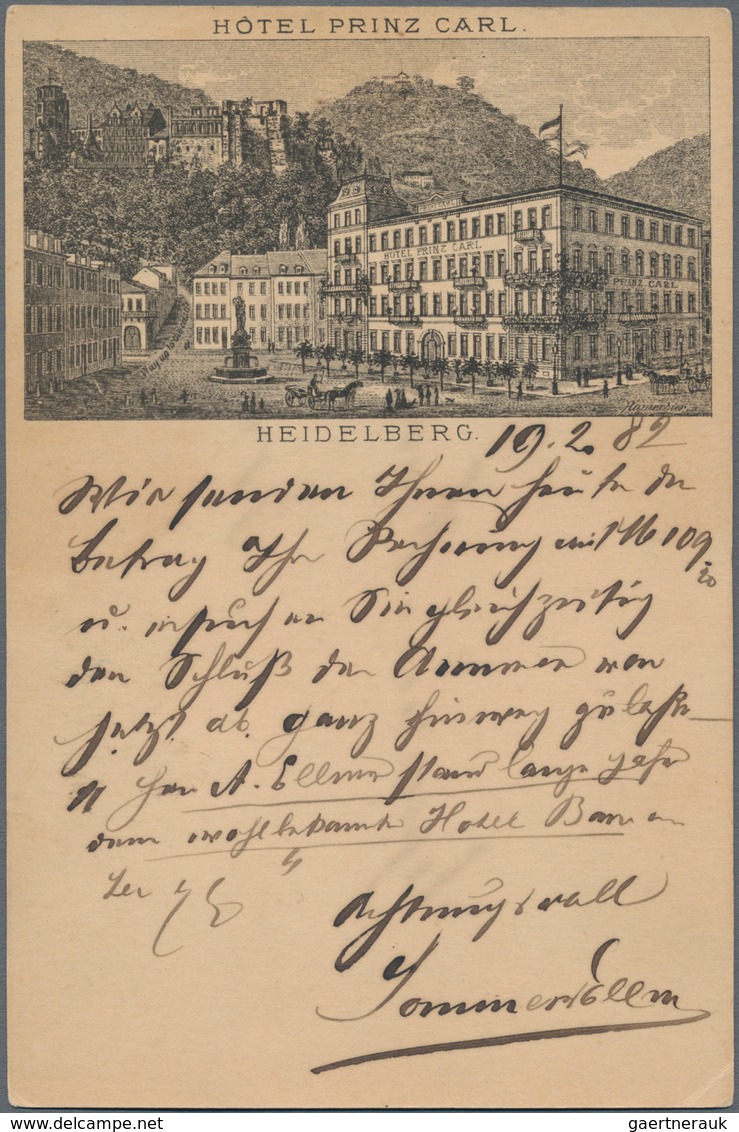 HÔTEL PRINZ CARL.
HOTEL PRINZ CARL
PRINZ CARL
Way up to Castle
HEIDELBERG.
19. 2. 82
Wir sandten Ihnen heute den
Betrag Ihr Rechnung mit M 109
20
u. ersuchen Sie gleichzeitig
den Schluß der Annonce von
jetzt ab. ganz hinweg zu laße
n Herr A. Ellmer stand lange Jahre
dem wohlbekannten Hotel
Achtungsvoll
Sommer & Ellmer
gaertnerauk
delcampe.net
gaertnerauk